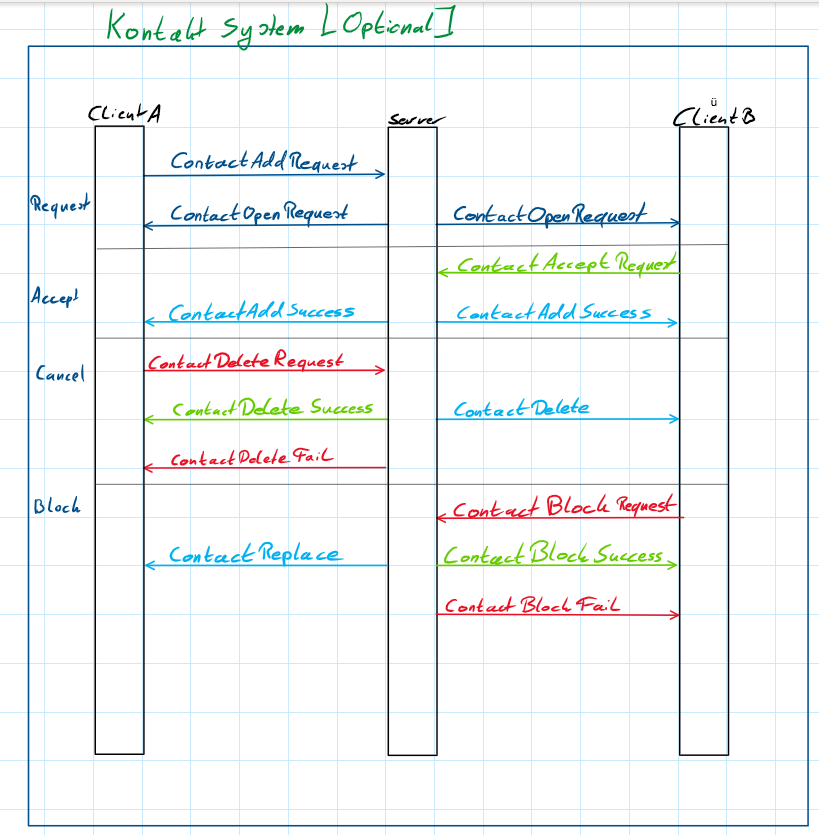 Kontakt System [Optional]
ü
Client A
Server
Client B
ContactAddRequest
Request
ContactOpenRequest
ContactOpenRequest
Contact Accept Request
Accept
ContactAdd Success
ContactAdd Success
ContactDeleteRequest
Cancel
ContactDelete Success
ContactDelete
ContactDelete Fail
Block
Contact Block Request
Contact Replace
Contact Block Success
Contact Block Fail